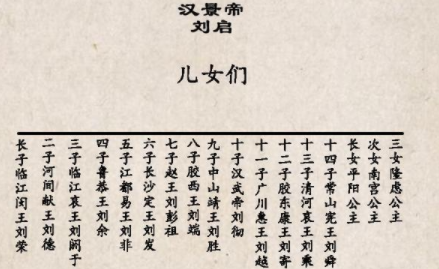 汉景帝
刘启
儿女们
长子临江闵王刘荣
二子河间献王刘德
三子临江哀王刘阏于
四子鲁恭王刘余
五子江都易王刘非
六子长沙定王刘发
七子赵王刘彭祖
八子胶西王刘端
九子中山靖王刘胜
十子汉武帝刘彻
十一子广川惠王刘越
十二子胶东康王刘寄
十三子清河哀王刘乘
十四子常山宪王刘舜
长女平阳公主
次女南宫公主
三女隆虑公主